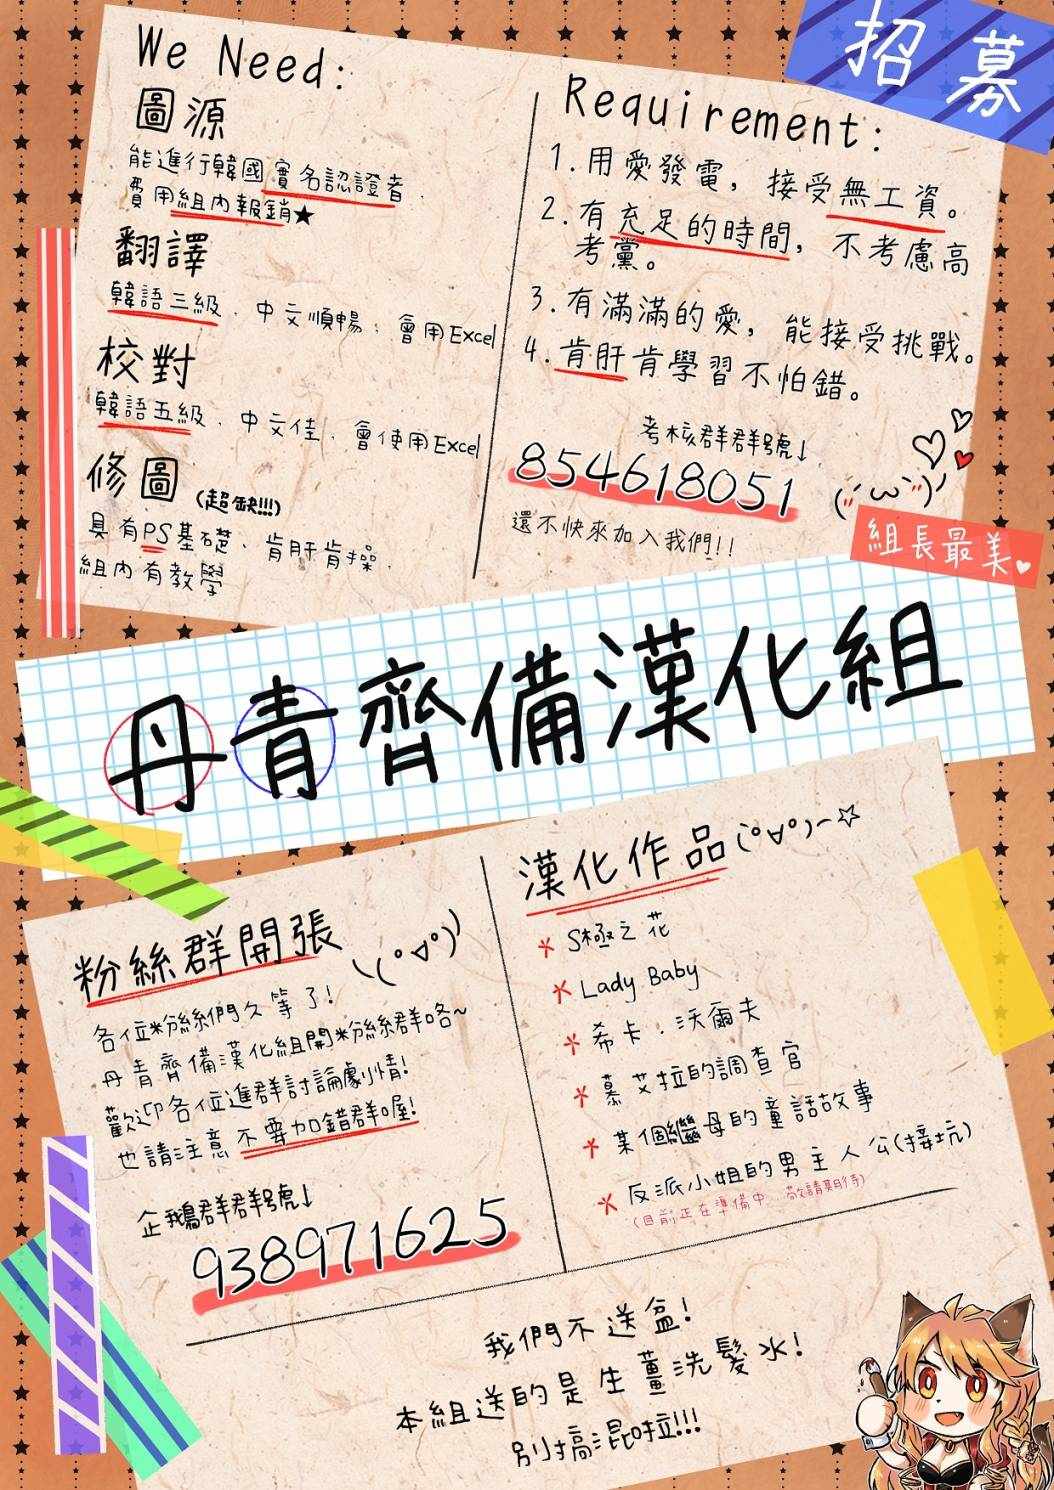 招募
We Need:
圖源
能進行韓國實名認證者.
費用組內報銷★
翻譯
韓語三級、中文順暢、會用Excel
校對
韓語五級、中文佳、會使用Excel
修圖(超缺!!!)
具有PS基礎、肯肝肯操.
組內有教學
Requirement:
1.用愛發電，接受無工資。
2.有充足的時間，不考慮高
考黨。
3.有滿滿的愛，能接受挑戰。
4.肯肝肯學習不怕錯。
考核群群號↓
854618051
還不快來加入我們!!
組長最美
丹青齊備漢化組
粉絲群開張
各位粉絲們久等了!
丹青齊備漢化組開粉絲群咯~
歡迎各位進群討論劇情!
也請注意不要加錯群喔!
企鵝群群號↓
938971625
漢化作品
S極之花
Lady Baby
希卡.沃爾夫
慕艾拉的調查官
某個繼母的童話故事
反派小姐的男主人公(接坑)
(目前正在準備中、敬請期待)
我們不送盒!
本組送的是生薑洗髮水!
別搞混啦!!!